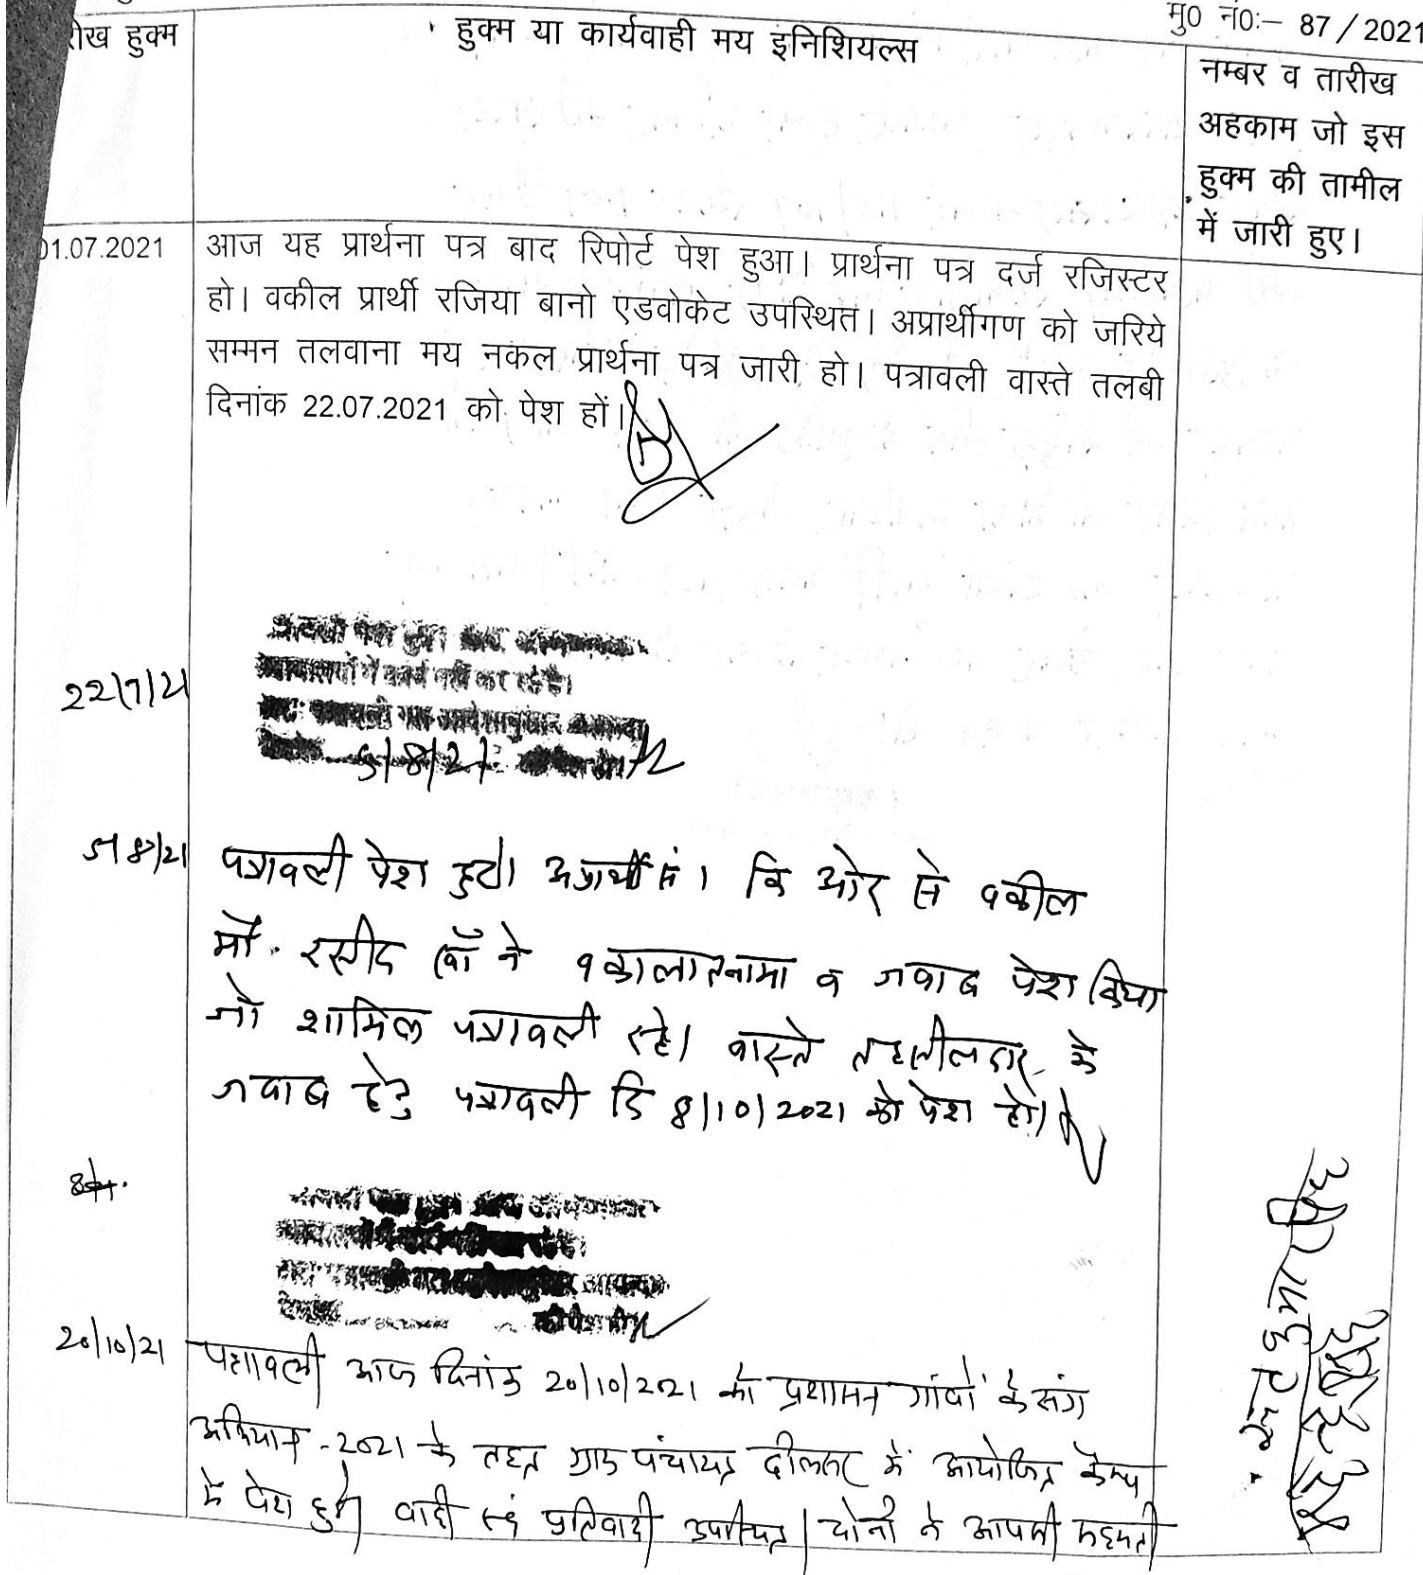 मु0 नं0:– 87 / 2021
रीख हुक्म
हुक्म या कार्यवाही मय इनिशियल्स
नम्बर व तारीख
अहकाम जो इस
हुक्म की तामील
में जारी हुए।
01.07.2021
आज यह प्रार्थना पत्र बाद रिपोर्ट पेश हुआ। प्रार्थना पत्र दर्ज रजिस्टर
हो। वकील प्रार्थी रजिया बानो एडवोकेट उपस्थित। अप्रार्थीगण को जरिये
सम्मन तलवाना मय नकल प्रार्थना पत्र जारी हो। पत्रावली वास्ते तलबी
दिनांक 22.07.2021 को पेश हों।
22/7/21
में कार्य नहीं कर रहे है।
5/8/21
5/8/21
पत्रावली पेश हुई। अप्रार्थी सं 1 कि ओर से वकील
मो. रसीद खाँ ने वकालातनामा व जवाब पेश किया
जो शामिल पत्रावली रहे। वास्ते तहसीलदार के
जवाब हेतु पत्रावली दि 8/10/2021 को पेश हो।
20/10/21
पत्रावली आज दिनांक 20/10/2021 को प्रशासन गांवों के संग
अभियान -2021 के तहत ग्राम पंचायत में आयोजित केम्प
में पेश हुई। वादी एवं प्रतिवादी उपस्थित। दोनों ने आपसी सहमती